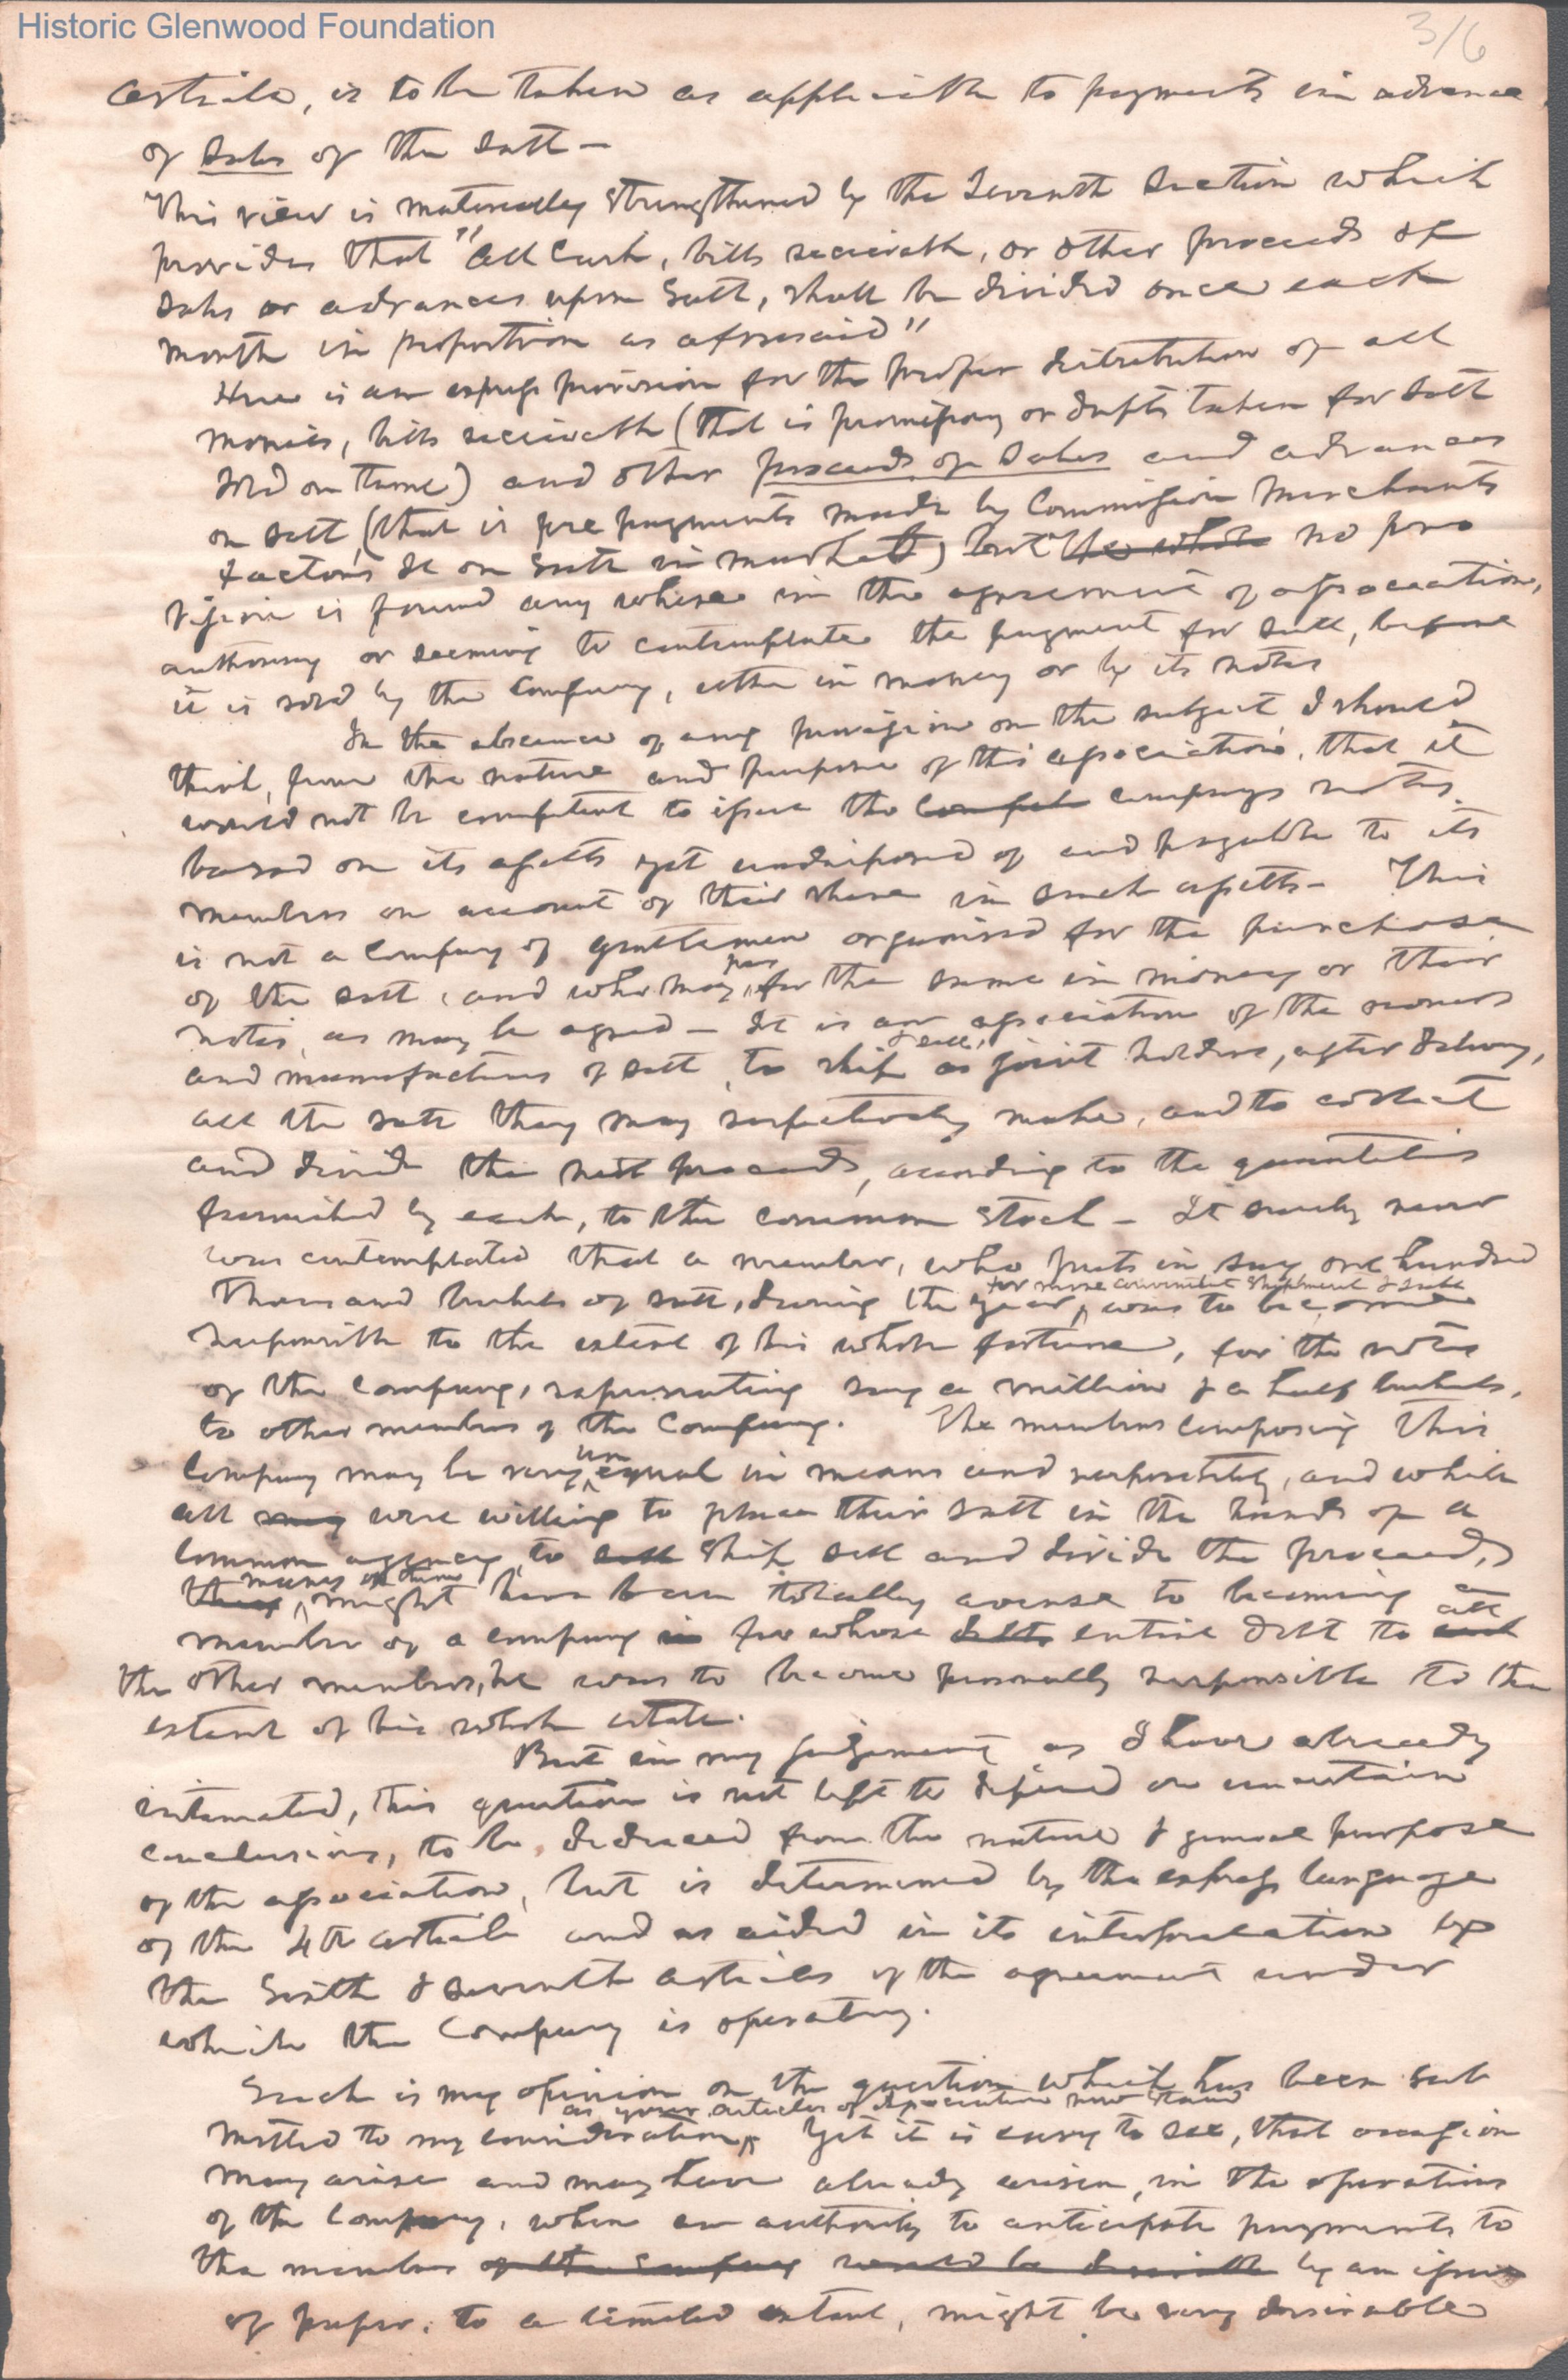 Historic Glenwood Foundation
3/6
article, is to be taken as applicable to payments in advance
of sales of the salt –
This view is materially strengthened by the Seventh Section which
provides that "all Cash, bills receivable, or other proceeds of
sales or advances upon Salt, shall be divided once each
month in proportion as aforesaid"
Here is an express provision for the proper distribution of all
monies, bills receivable (that is promissory or drafts taken for salt
sold on time) and other proceeds of sales and advances
on salt (that is pre payments made by Commission Merchants
factors &c on salt in market) but the whole no pro
vision is found any where in the agreement of association,
authorising or seeming to contemplate the payment for salt, before
it is sold by the Company, either in money or by its notes
In the absence of any provision on the subject I should
think, from the nature and purpose of this association, that it
would not be competent to issue the companys notes,
based on its assets yet undisposed of and payable to its
members on account of their share in such assetts – This
is not a Company of gentlemen organised for the purchase
of the salt, and who may pay for the same in money or their
notes, as may be agreed – It is an association of the owners
and manufacturers of salt, to ship & sell, as joint holders, after delivery,
all the salt they may respectively make, and to collect
and divide the nett proceeds, according to the quantities
furnished by each, to the common stock – It surely never
was contemplated that a member, who puts in say one hundred
for more convenient shipment & sale
Thousand bushels of salt, during the year, was to become
responsible to the extent of his whole fortune, for the notes
of the Company, representing say a million & a half bushels,
to other members of the Company. The members composing this
Company may be very unequal in means and responsibility, and while
all may were willing to place their salt in the hands of a
common agency, to sell ship sell and divide the proceeds,
they many of them might have been totally averse to becoming a
member of a company in for whose debts entire debt to each all
the other members, he was to become personally responsible to the
extent of his whole estate.
But in my judgement as I have already
intimated, this question is not left to depend on uncertain
conclusions, to be deduced from the nature & general purpose
of the association, but is determined by the express language
of the 4th article and as aided in its interpretation by
the Sixth & seventh articles of the agreement under
which the Company is operating.
Such is my opinion on the question which has been sub
as your articles of association now stand
mitted to my consideration, Yet it is easy to see, that occasion
may arise and may have already arisen, in the operations
of the Company, when an authority to anticipate payments to
the members of the Company would be desirable by an issue
of paper, to a limited extent, might be very desirable